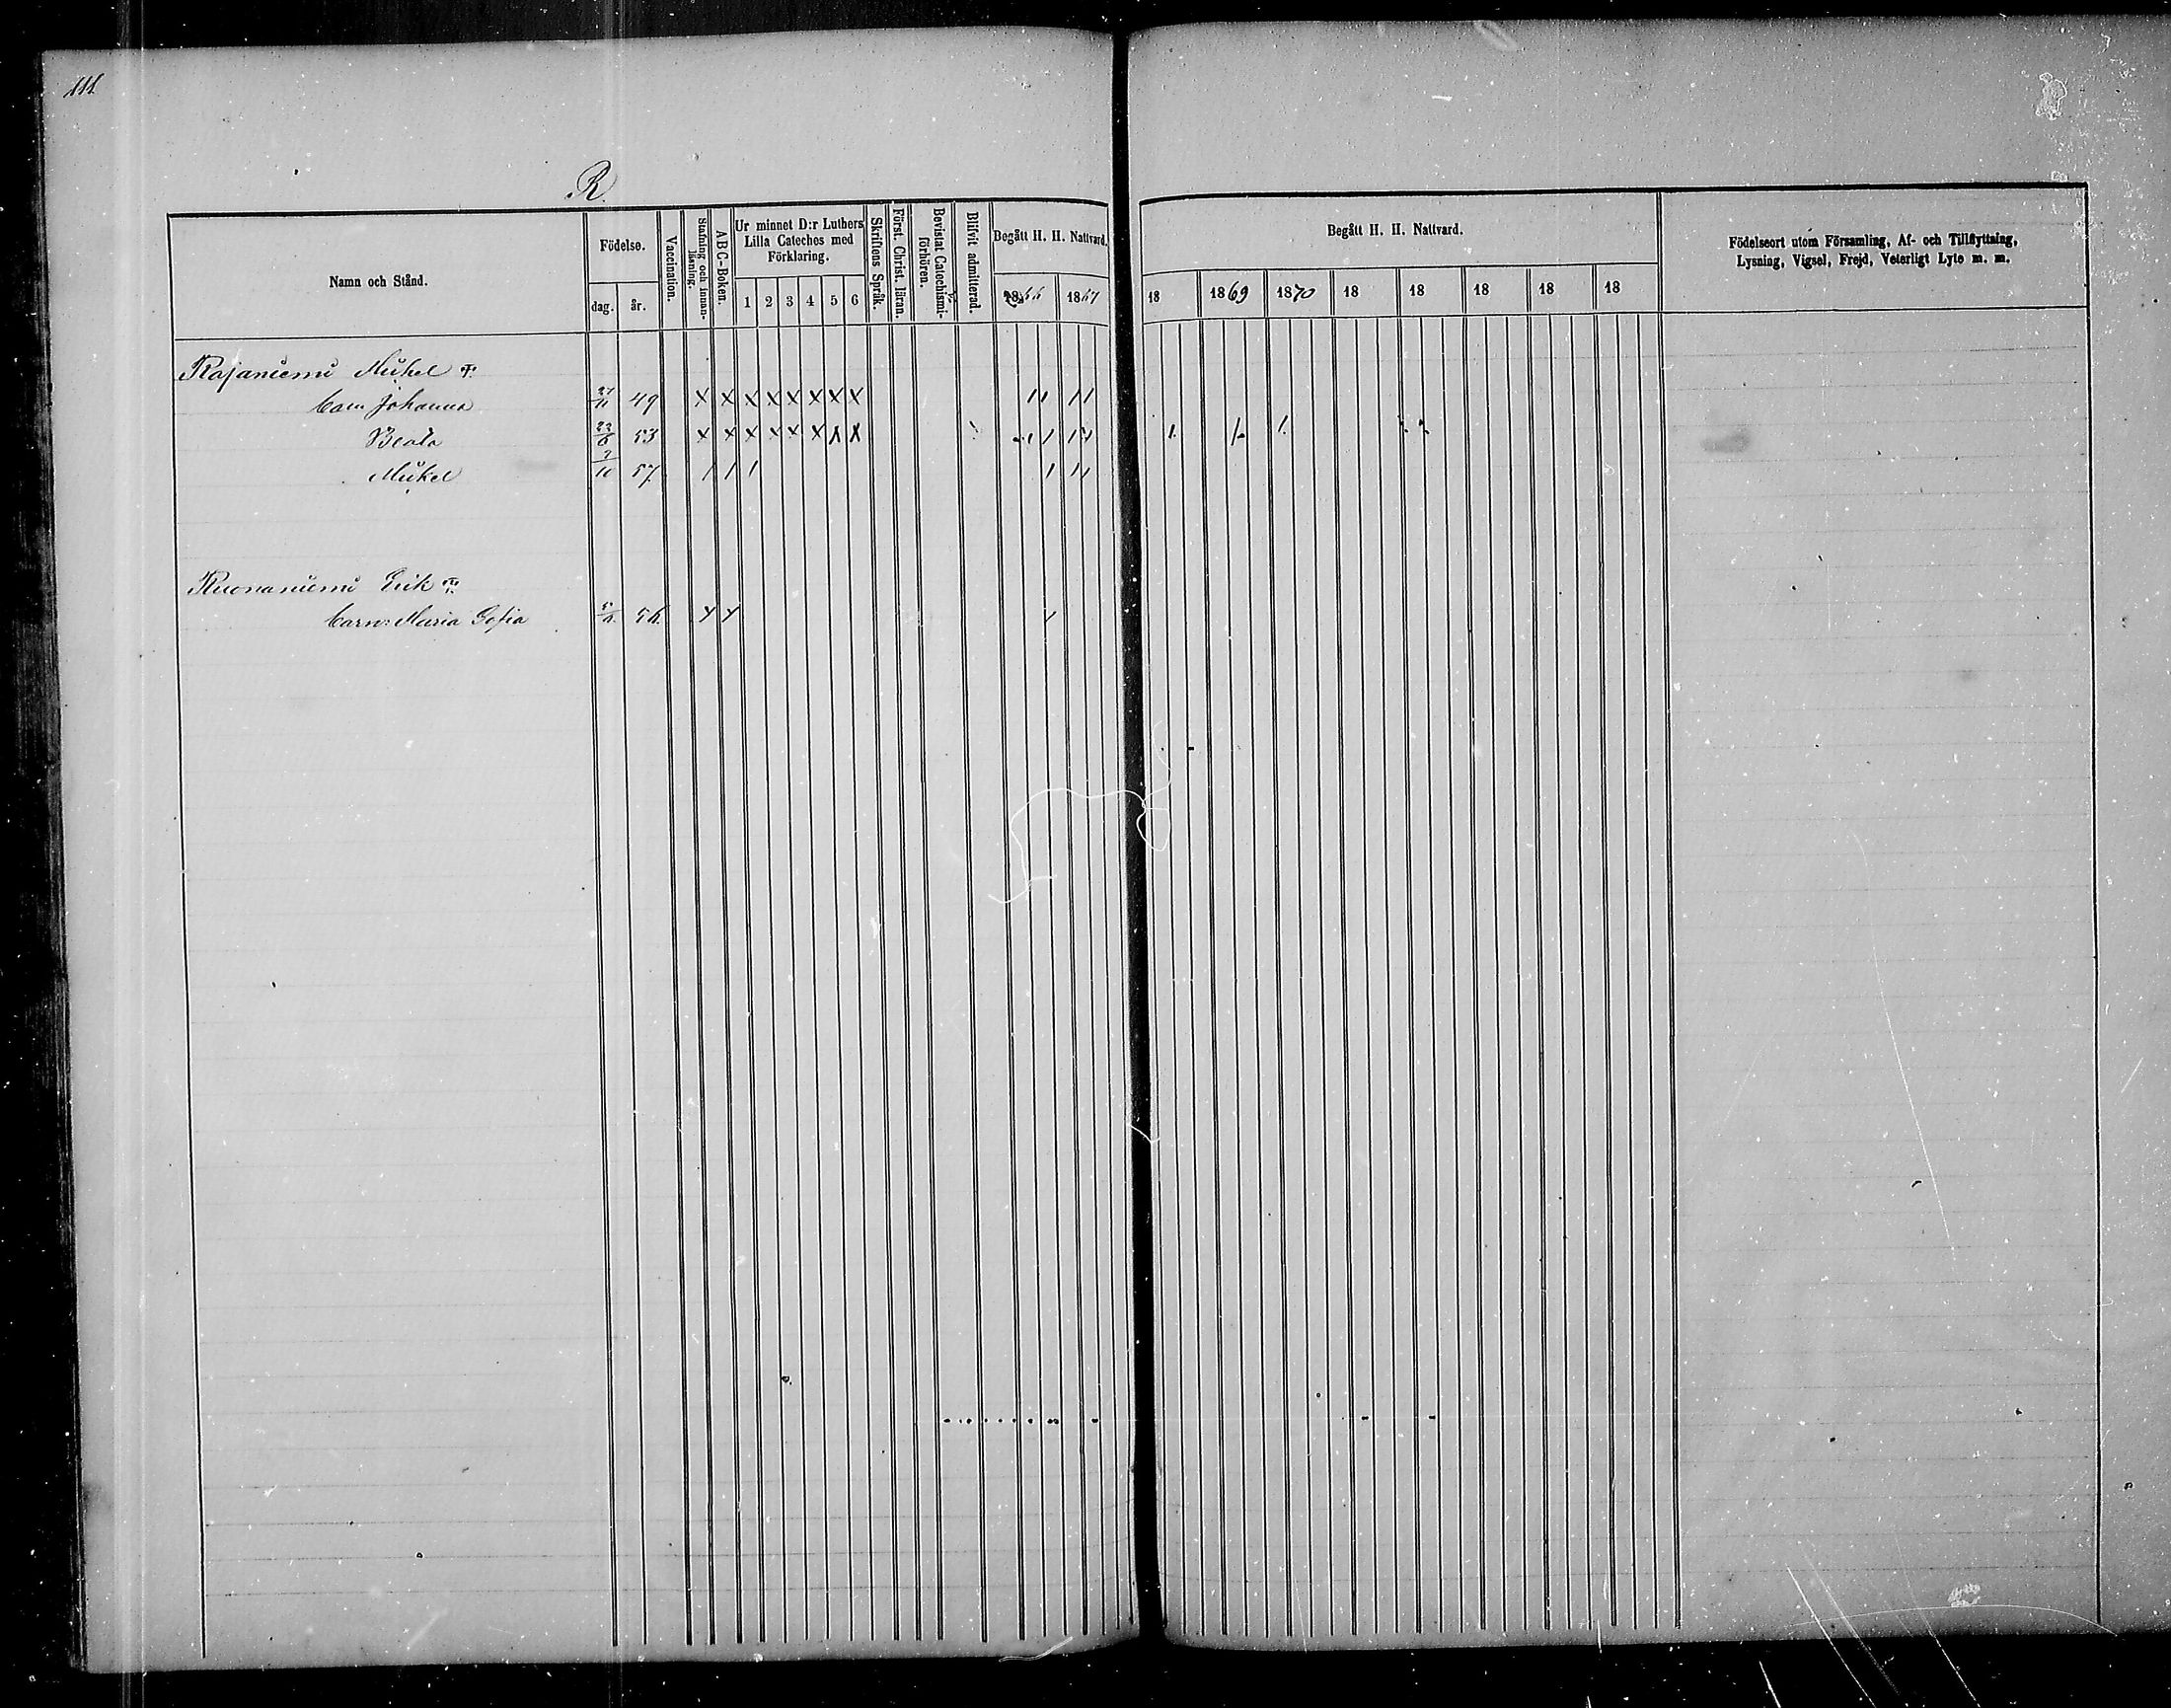 111
R.
Namn och Stånd.
Födelse.
dag. år.
Vaccination.
Stafning och innanläsning.
A B C-Boken.
Ur minnet D:r Luthers Lilla Cateches med Förklaring.
1 2 3 4 5 6
Skriftens Språk.
Först. Christ. läran.
Bevistat Catechismi-förhören.
Blifvit admitterad.
Begått H. H. Nattvard.
1866 1867
Begått H. H. Nattvard.
18 1869 1870 18 18 18 18 18
Födelseort utom Församling, Af- och Tillflyttning,
Lysning, Vigsel, Frejd, Veterligt Lyte m. m.
Rajaniemi Mikel
Johanna 27/11 49 x x x x x x x x 11 11
Beata 23/6 53 x x x x x x x x
Mikel 7/10 57. 1 1 1 1 11
Ruonaniemi Erik
Barn: Maria Sofia